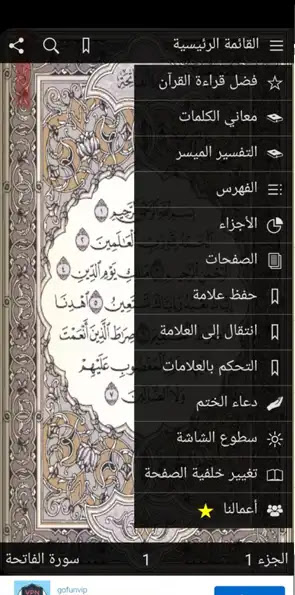 القائمة الرئيسية
فضل قراءة القرآن
معاني الكلمات
التفسير الميسر
الفهرس
الأجزاء
الصفحات
حفظ علامة
انتقال إلى العلامة
التحكم بالعلامات
دعاء الختم
سطوع الشاشة
تغيير خلفية الصفحة
أعمالنا
ٱلْعَٰلَمِينَ ٢
يَوْمِ ٱلدِّينِ ٤
ٱهْدِنَا
صِرَٰطَ ٱلَّذِينَ أَنْعَمْتَ
عَلَيْهِمْ
الجزء 1
1
سورة الفاتحة
gofunvip
VPN